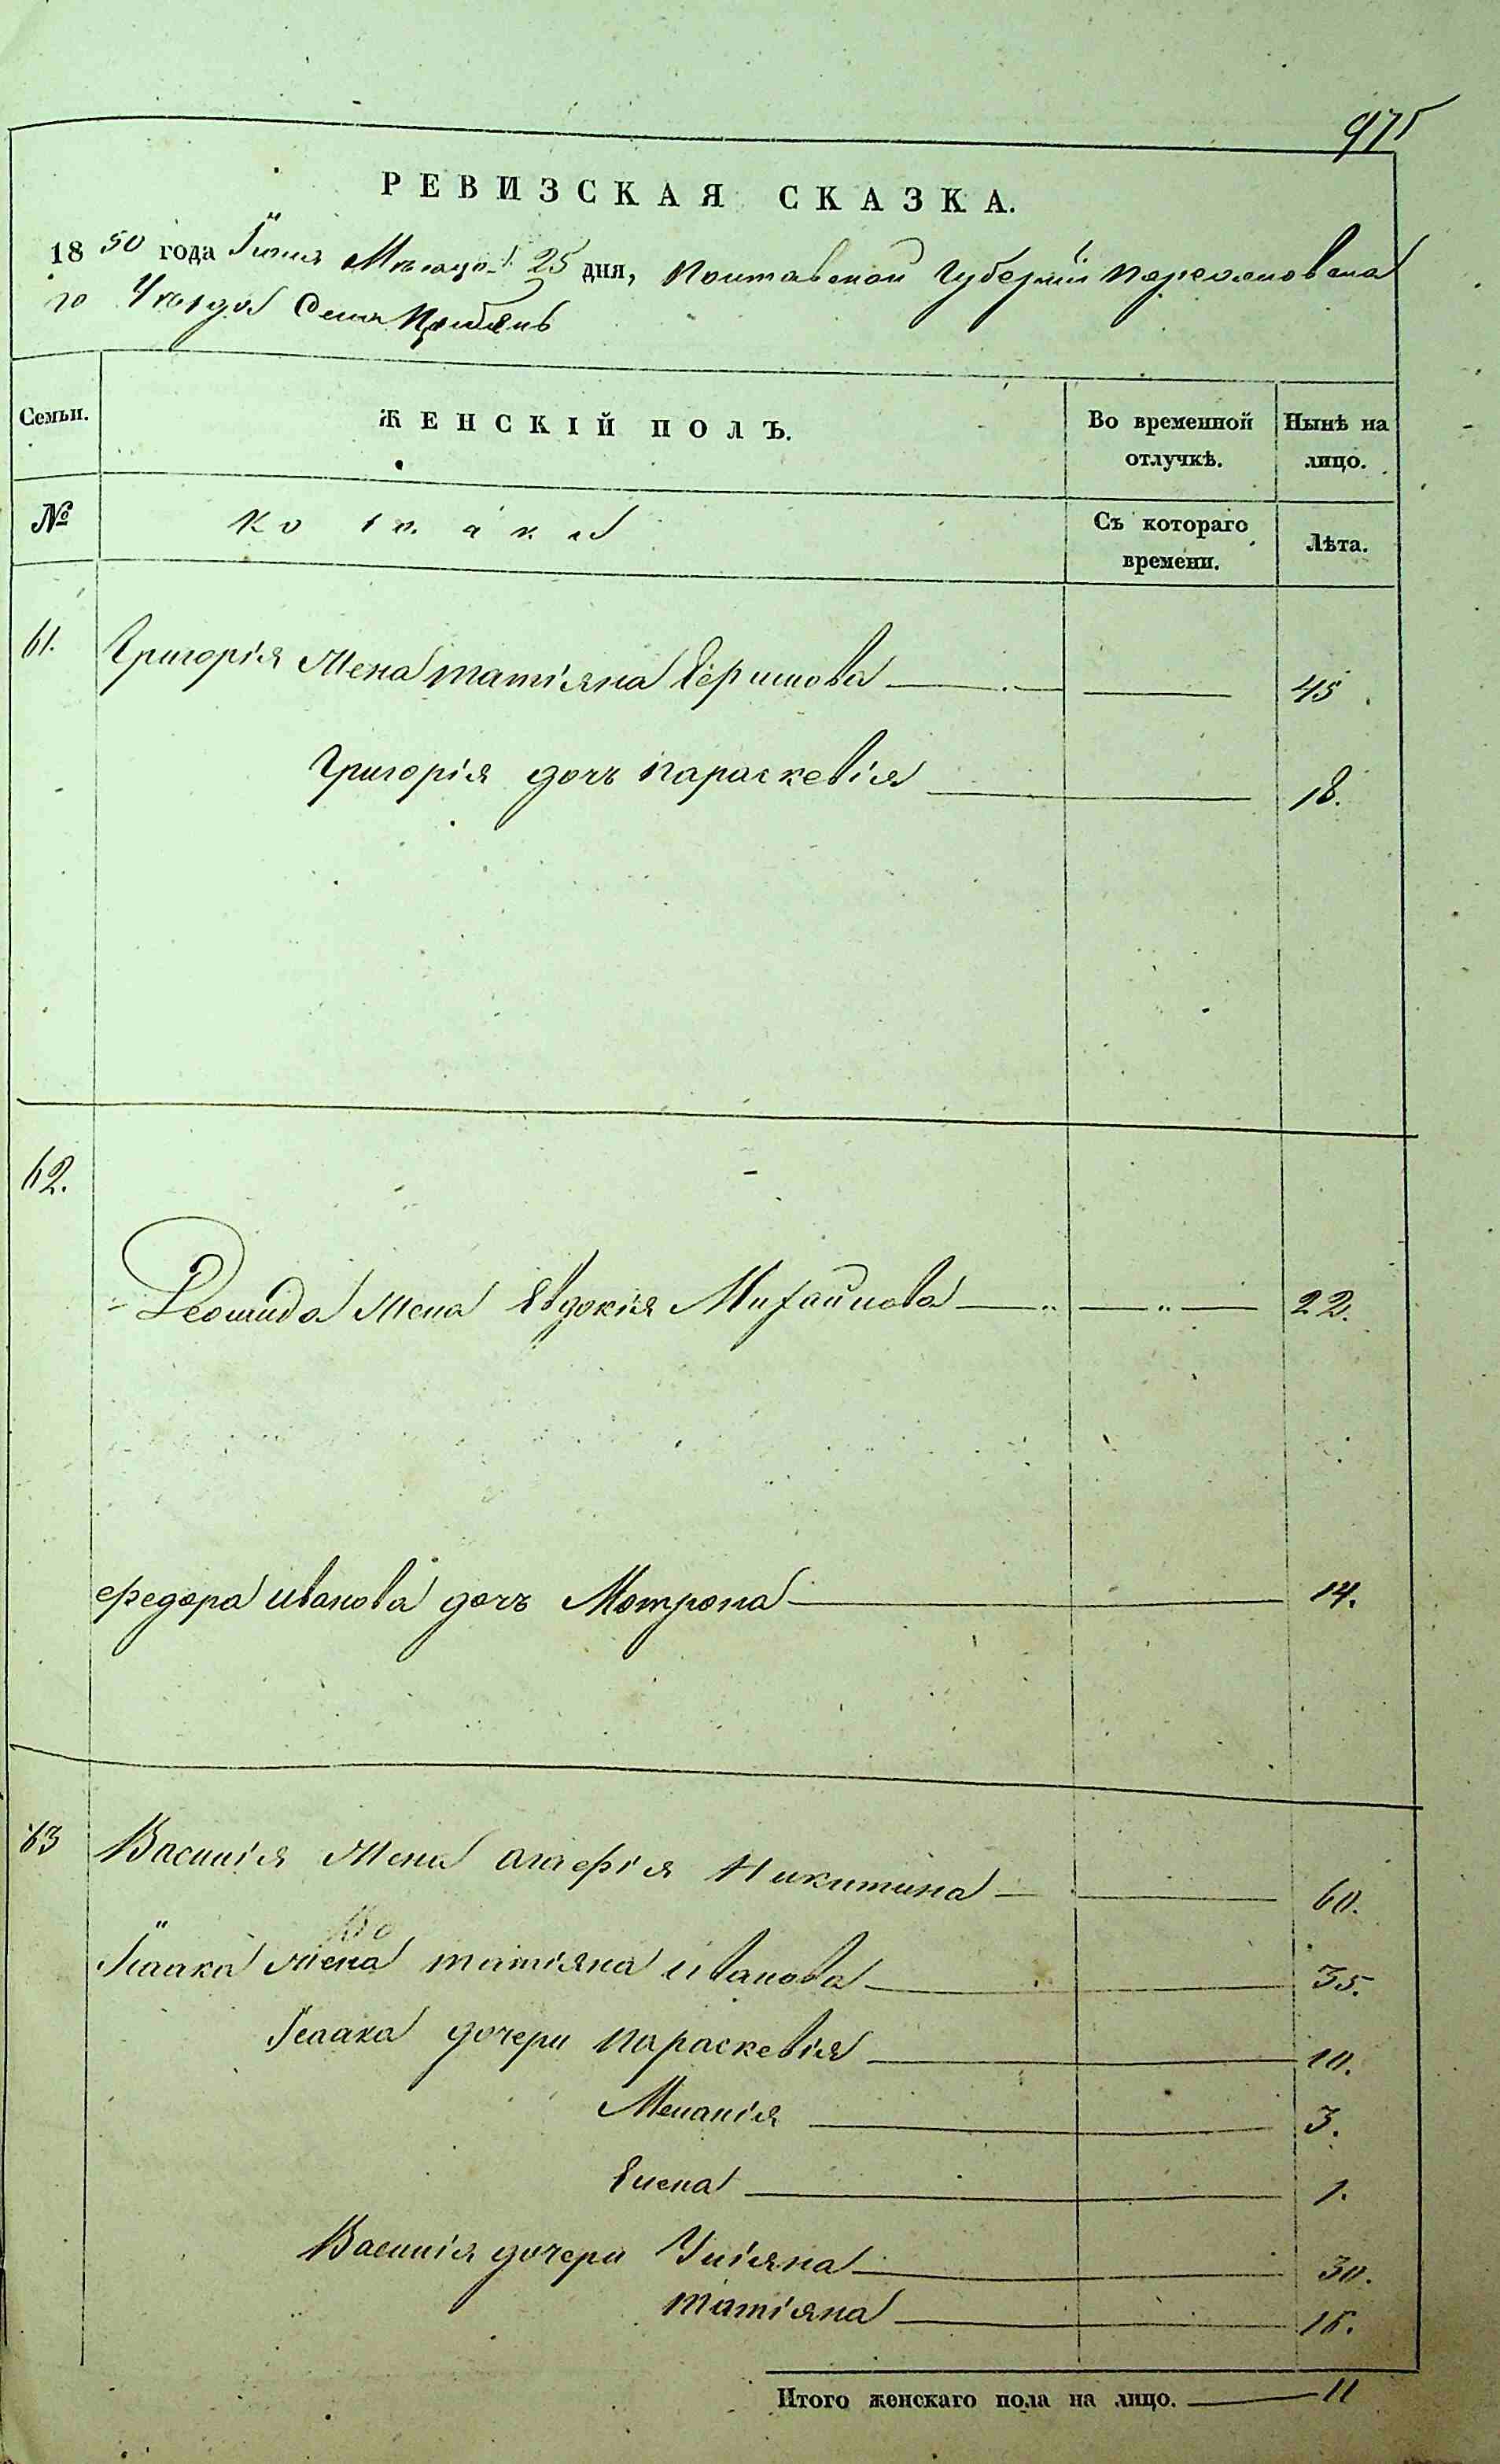 975
РЕВИЗСКАЯ СКАЗКА.
1850 года Іюня Мѣсяца 25 дня, Полтавской Губерніи Переяславска
го Уѣзда Села
Семьи. ЖЕНСКІЙ ПОЛЪ. Во временной отлучкѣ. Нынѣ на лицо.
№ Козака Съ котораго времени. Лѣта.
61. Григорія жена татіяна Ефимова 45
Григорія дочь параскевія 18.
62.
Леонида жена Евдокія Михайлова 22.
Федора иванова дочь Мотрона 14.
63 Василія жена агафія Никитина 60.
Ісаака жена татіяна иванова 35.
Ісаака дочери параскевія 10.
Меланія 3.
Елена 1.
Василія дочери Уліяна 30.
татіяна 16.
Итого женскаго пола на лицо. 11